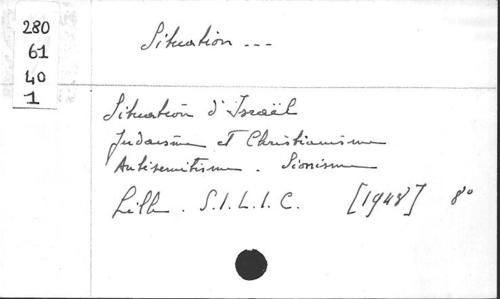 280
61
40
1
Situation ---
Situation d'Israël
Judaïsme et Christianisme
Antisemitisme . Sionisme
Lille . S.I.L.I.C. [1948] 8°